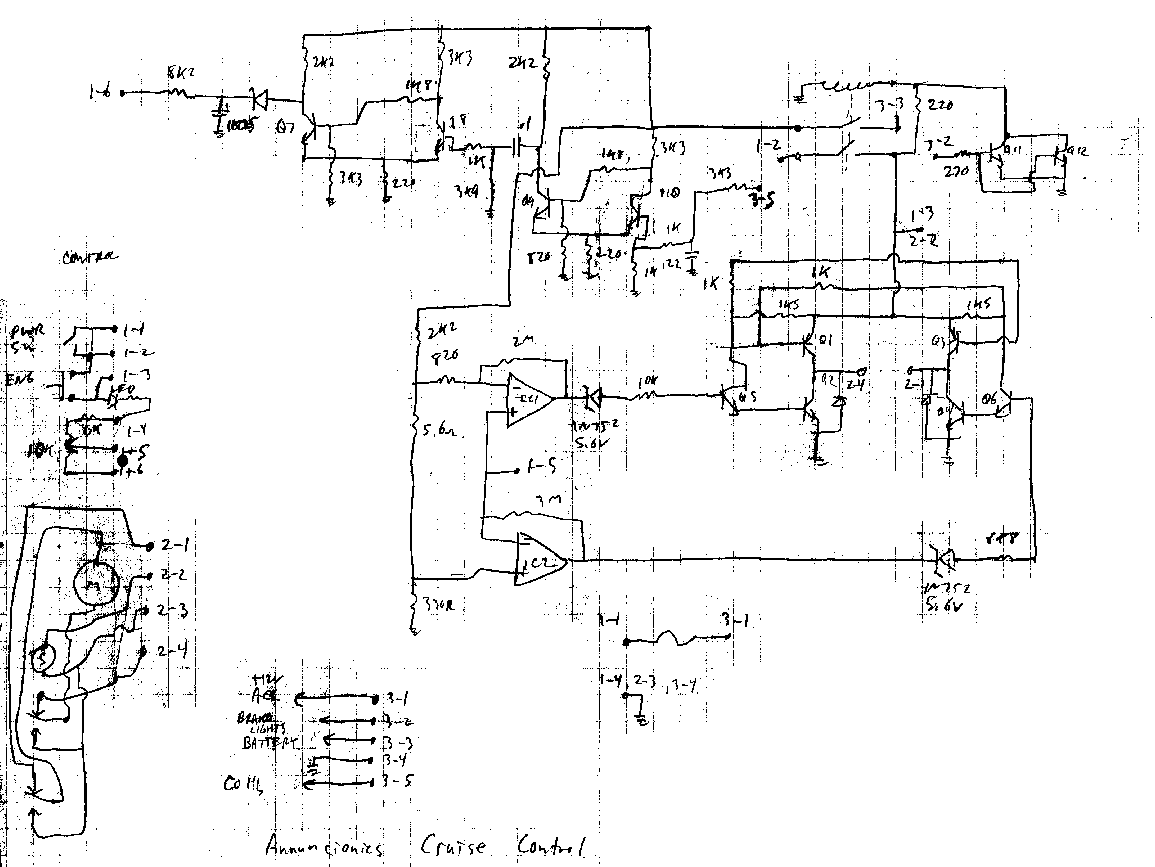 8K2
2K2
3K3
2K2
1K8
1-6
Q7
Q8
.1
1K
3K3
220
3K9
1K8
3K3
Q9
Q10
820
220
1K
1K
.22
3K3
3-5
3-3
1-2
220
3-2
270
Q11
Q12
1-3
2-2
1K
1K
1K5
1K5
CONTROL
PWR
SW
1-1
1-2
ENG
1-3
LED
1-4
10K
1-5
1-6
2K2
820
2M
IC1
1N752
5.6V
10K
Q5
Q1
Q2
2-4
Q3
2-1
Q4
Q6
5.6K
1-5
3M
IC2
330R
1N752
5.6V
6K8
M
S
2-1
2-2
2-3
2-4
1-1
3-1
1-4, 2-3, 3-4
+12V
ACC
3-1
BRAKE
LIGHTS
3-2
BATTERY
3-3
3-4
COIL
3-5
Annuncionics Cruise Control